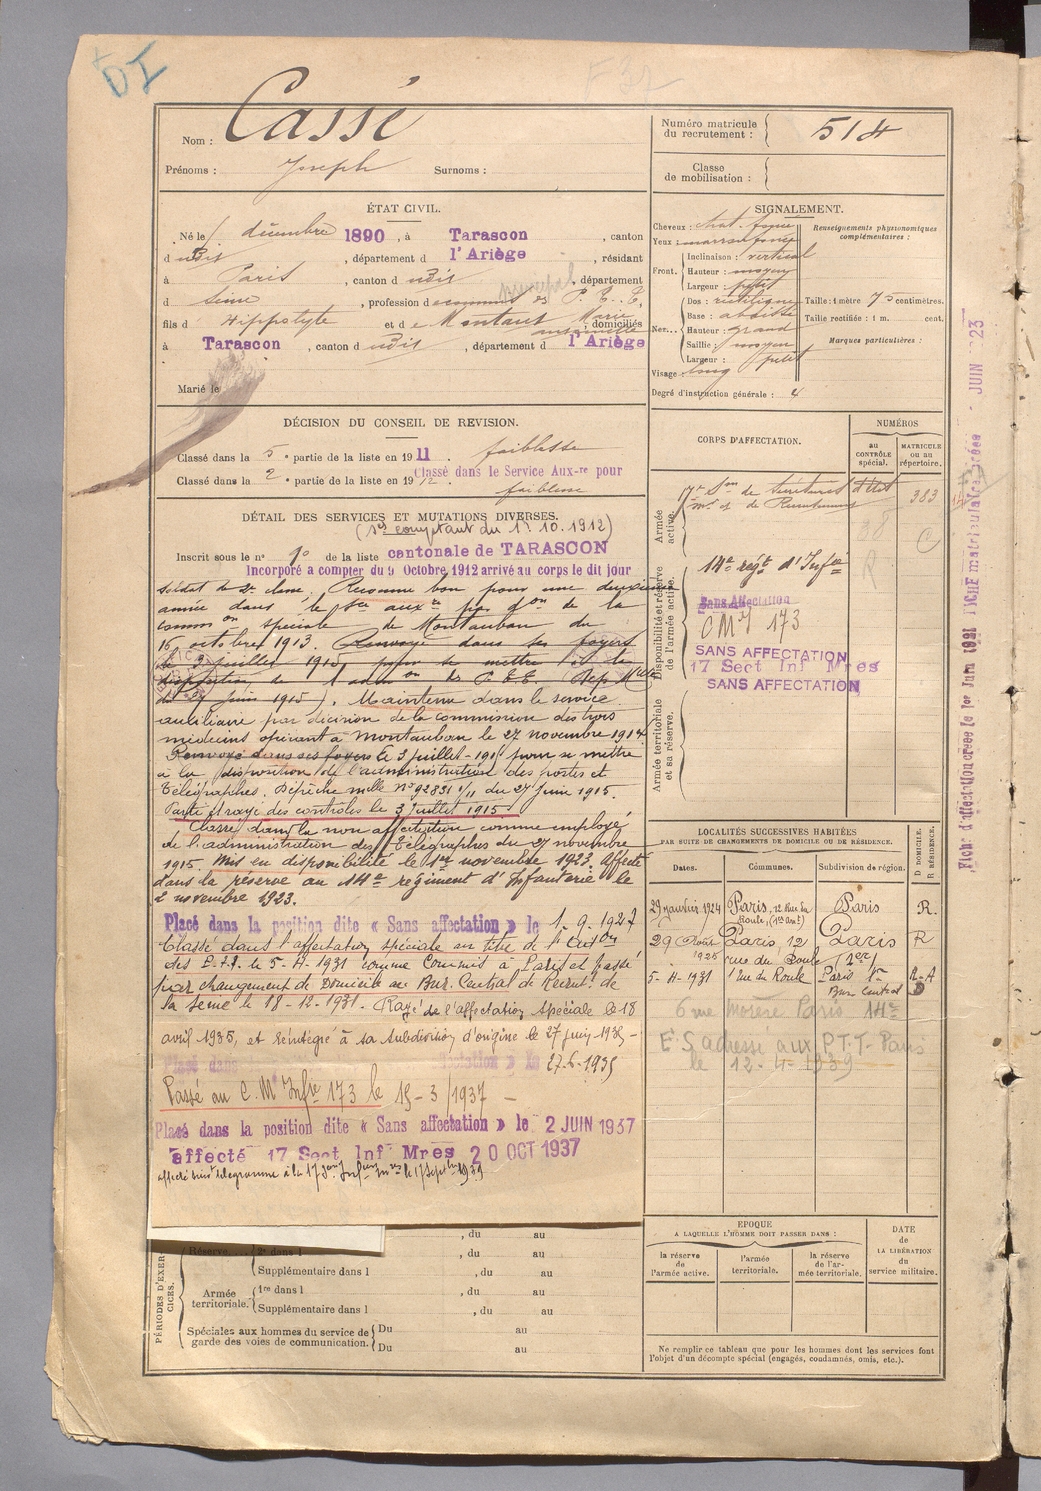 DI
F 37
Nom : Cassé
Prénoms : Joseph Surnoms :
Numéro matricule
du recrutement : 514
Classe
de mobilisation :
ÉTAT CIVIL.
Né le 1 décembre 1890, à Tarascon, canton
d udit, département d l'Ariège, résidant
à Paris, canton d udit, département
principal
d Seine, profession de commis des P. T. T,
fils d' Hippolyte et de Montaut Marie
Antoinette, domiciliés
à Tarascon, canton d udit, département d l'Ariège
Marié le
SIGNALEMENT.
Cheveux : chat. foncé
Yeux : marron foncé
Front. Inclinaison : vertical
Hauteur : moyen
Largeur : petit
Nez. Dos : rectiligne
Base : abaissé
Hauteur : grand
Saillie : moyen
Largeur : petit
Visage : long
Degré d'instruction générale : 4
Renseignements physionomiques
complémentaires :
Taille : 1 mètre 75 centimètres.
Taille rectifiée : 1 m. cent.
Marques particulières :
DÉCISION DU CONSEIL DE REVISION.
Classé dans la 5e partie de la liste en 1911. faiblesse
Classé dans la 2e partie de la liste en 1912 Classé dans le Service Aux-re pour
faiblesse
DÉTAIL DES SERVICES ET MUTATIONS DIVERSES.
(Ses comptant du 1r. 10. 1912)
Inscrit sous le n° 10 de la liste cantonale de TARASCON
Incorporé a compter du 9 Octobre 1912 arrivé au corps le dit jour
soldat de 2e classe, Reconnu bon pour une deuxième
année dans le sce auxre par don de la
common spéciale de Montauban du
16 octobre 1913. Renvoyé dans ses foyers
le 3 juillet 1915, pour se mettre à la
disposition de l'admon des P.T.T. Dep Mlle
du 27 juin 1915). Maintenu dans le service
auxiliaire par décision de la commission des trois
médecins opérant à Montauban le 27 novembre 1914
Renvoyé dans ses foyers le 3 juillet 1915 pour se mettre
à la disposition de l'administration des postes et
Télégraphes. Dépêche mlle N° 92831 1/11 du 27 Juin 1915.
Parti et rayé des contrôles le 3 juillet 1915.
Classé dans la non affectation comme employé
de l'administration des Télégraphes du 27 novembre
1915. Mis en disponibilité le 1er novembre 1923. Affecté
dans la réserve au 14e régiment d'Infanterie le
2 novembre 1923.
Placé dans la position dite « Sans affectation » le 1.9.1927
Classé dans l'affectation spéciale au titre de
des P.T.T. le 5-4-1931 comme Commis à Paris et passé
par changement de Domicile au Bur. Central de Recrutt de
la Seine le 18-12-1931. Rayé de l'affectation spéciale le 18
avril 1935, et réintégré à sa subdivision d'origine le 27 juin 1935-
Placé dans affectation » le 27-6-1935
Passé au C. M Infrie 173 le 15-3/1937 -
Placé dans la position dite « Sans affectation » le 2 JUIN 1937
affecté 17 Sect Inf Mres 20 OCT 1937
CORPS D'AFFECTATION.
NUMÉROS
au
CONTRÔLE
spécial.
MATRICULE
ou au
répertoire.
Armée
active.
17e Son de Secrétaires d'Etat
Mor et de Recrutement
383
Disponibilité et réserve
de l'armée active.
14e régt d'Infie
Sans Affectation
CMI 173
SANS AFFECTATION
17 Sect Inf Mres
SANS AFFECTATION
Armée territoriale
et sa réserve.
LOCALITÉS SUCCESSIVES HABITÉES
PAR SUITE DE CHANGEMENTS DE DOMICILE OU DE RÉSIDENCE.
D DOMICILE.
R RÉSIDENCE.
Dates. Communes. Subdivision de région.
29 janvier 1924 Paris, 12 Rue du
Roule, (1er Arrt) Paris R.
29 1925 Paris, 12
rue du Roule Paris
(1er) R
5-4-1931 1 Rue du Roule Paris
Bur Central R-A
D
Paris 14e
E S adressé aux P.T.T- Paris
le 12-4-1939
EPOQUE
A LAQUELLE L'HOMME DOIT PASSER DANS :
la réserve
de
l'armée active.
l'armée
territoriale.
la réserve
de l'ar-
mée territoriale.
DATE
de
LA LIBÉRATION
du
service militaire.
Ne remplir ce tableau que pour les hommes dont les services font
l'objet d'un décompte spécial (engagés, condamnés, omis, etc.).
PÉRIODES D'EXER-
CICES.
, du au
Réserve... 2e dans l , du au
Supplémentaire dans l , du au
Armée
territoriale. 1re dans l , du au
Supplémentaire dans l , du au
Spéciales aux hommes du service de
garde des voies de communication. Du au
Du au
Fiche d'affectation créée le 1er Juin 1921 FICHE matriculaire créée JUIN 1923